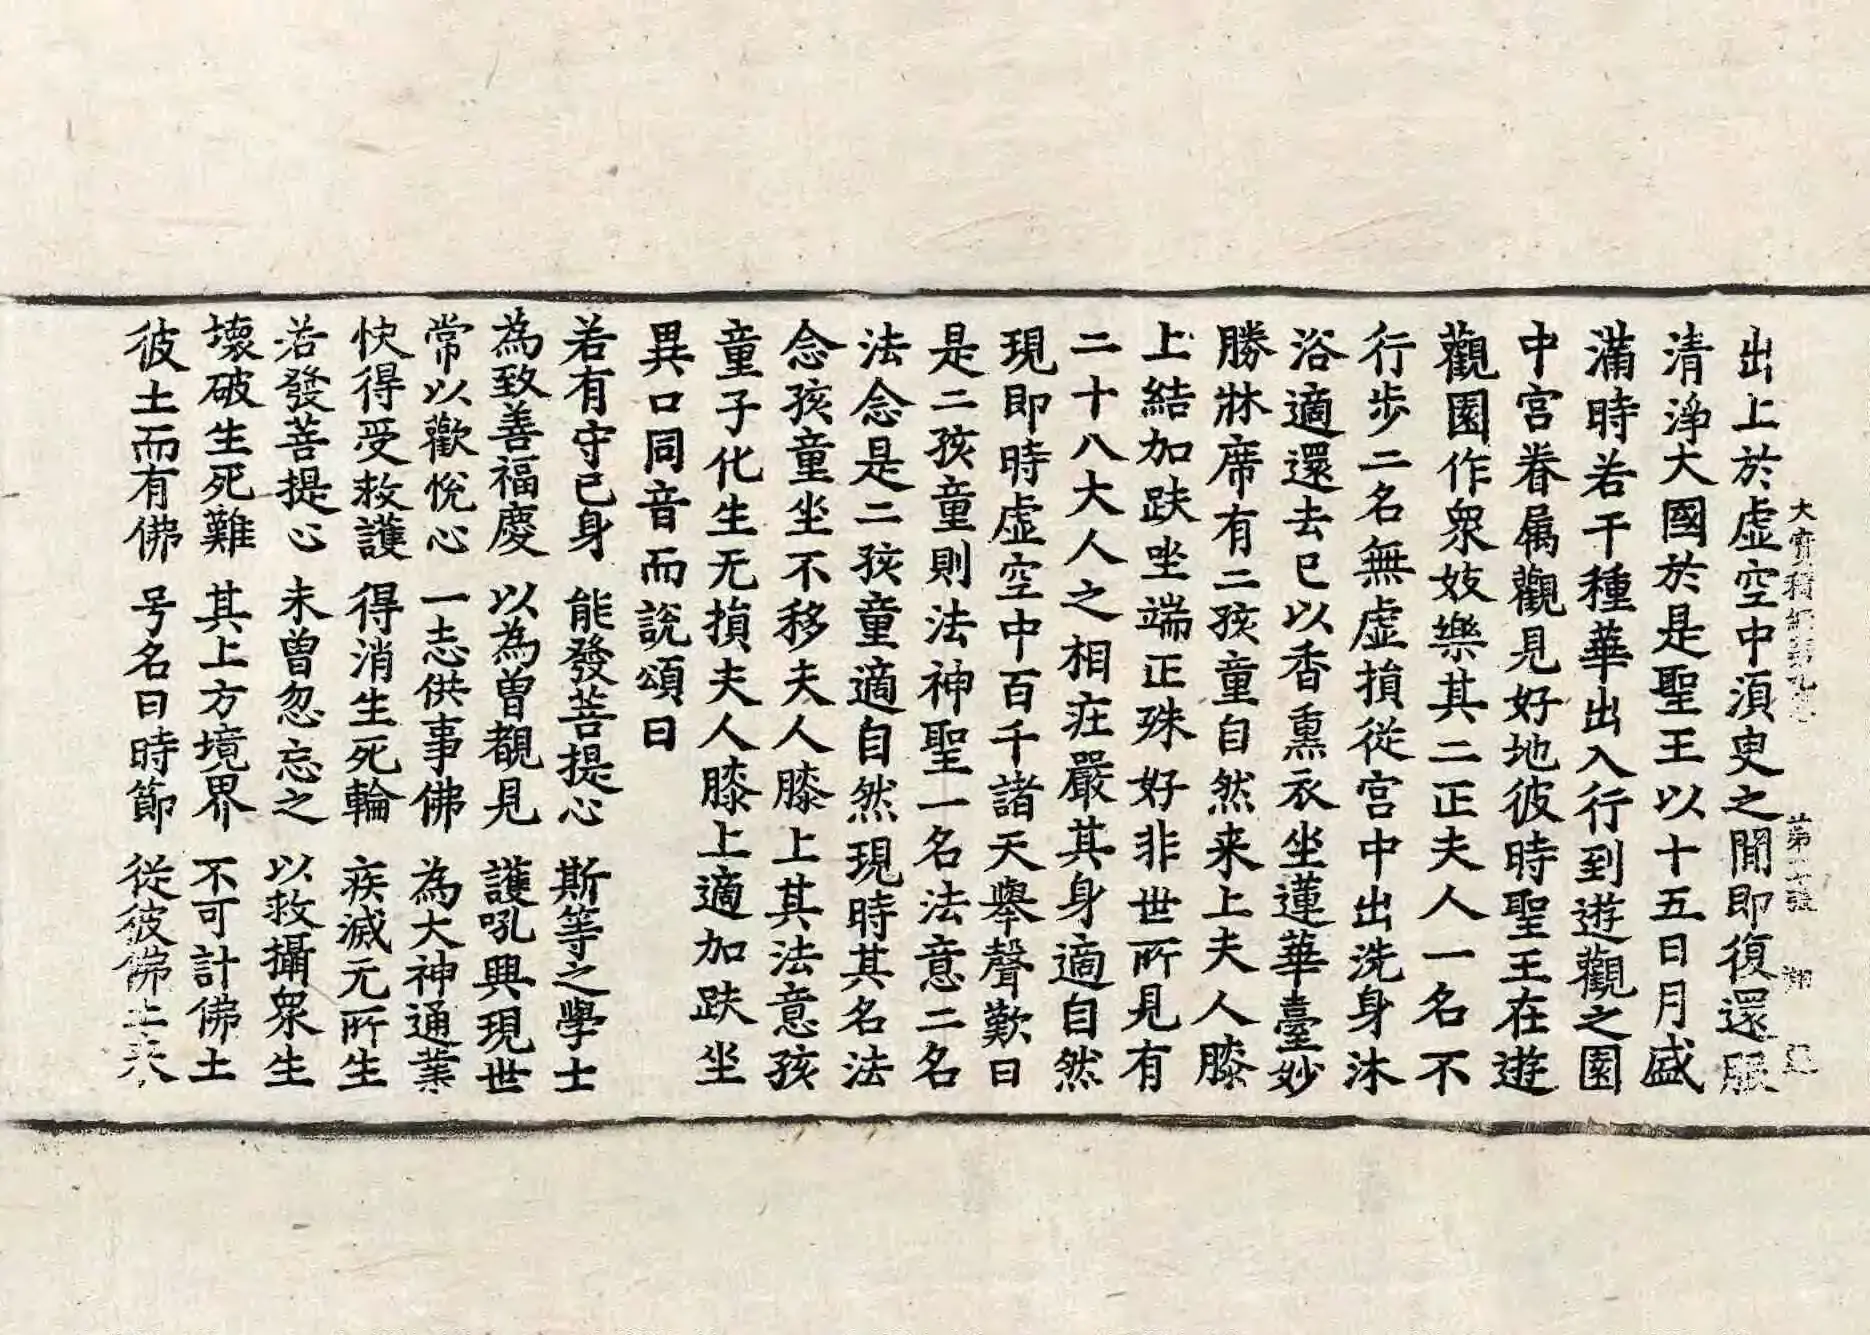 大寶積經第九卷 第二十張 翔
出上於虛空中湏臾之閒即復還服
清淨大國於是聖王以十五日月盛
滿時若干種華出入行到遊觀之園
中宮眷屬觀見好地彼時聖王在遊
觀園作衆妓樂其二正夫人一名不
行步二名無虛損從宮中出洗身沐
浴適還去已以香熏衣坐蓮華臺妙
勝牀席有二孩童自然来上夫人膝
上結加趺坐端正殊好非世所見有
二十八大人之相莊嚴其身適自然
現即時虛空中百千諸天舉聲歎曰
是二孩童則法神聖一名法意二名
法念是二孩童適自然現時其名法
念孩童坐不移夫人膝上其法意孩
童子化生无損夫人膝上適加趺坐
異口同音而說頌曰
若有守己身 能發菩提心 斯等之學士
為致善福慶 以為曾覩見 護吼興現世
常以歡悅心 一志供事佛 為大神通業
快得受救護 得消生死輪 疾滅无所生
若發菩提心 未曾忽忘之 以救攝衆生
壞破生死難 其上方境界 不可計佛土
彼土而有佛 号名曰時節 從彼佛土来